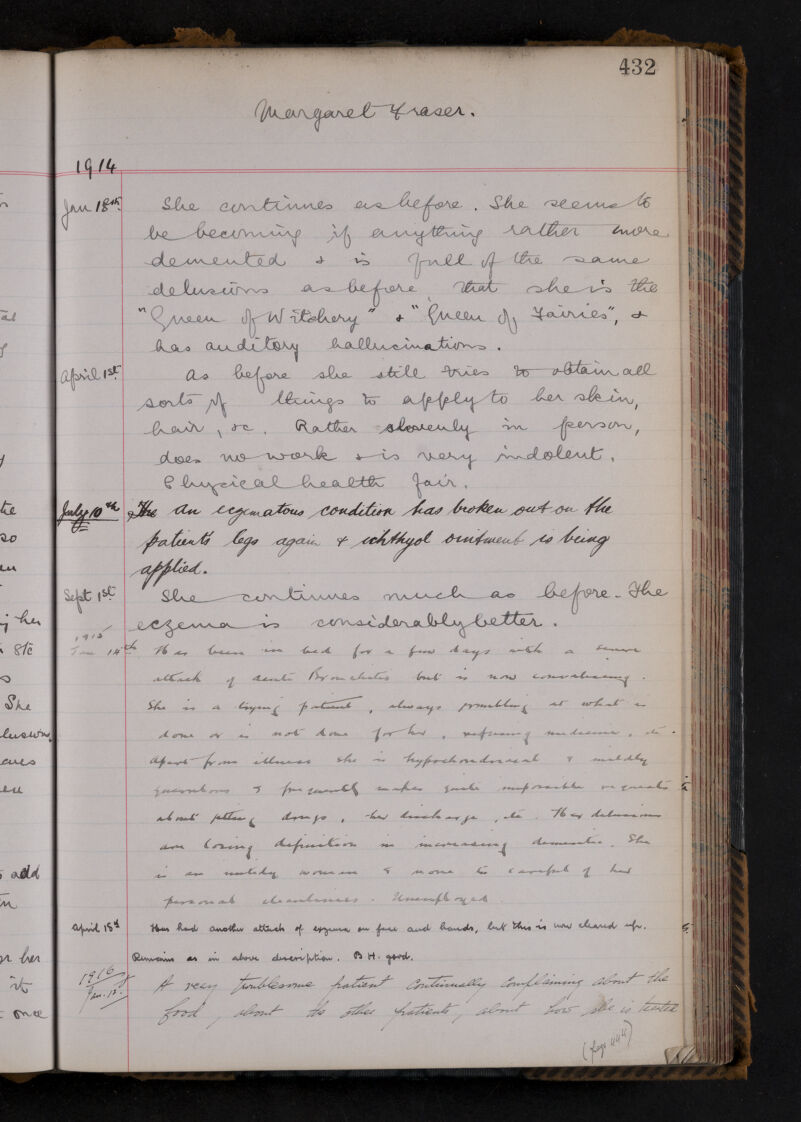 432
Margaret Fraser.
1914
Jan 18th. She continues as before. She seems to
be becoming if anything rather more
demented & is full of the same
delusions as before, that she is the
"Queen of Witchery" & "Queen of Fairies", &
has auditory hallucinations.
April 1st. As before she still tries to obtain all
sorts of things to apply to her skin,
hair, &c. Rather slovenly in person,
does no work & is very indolent.
Physical health fair.
July 10th The An eczematous condition has broken out on the
patient's legs again & ichthyol ointment is being
applied.
Sept 1st. She continues much as before. The
eczema is considerably better.
1915
Jan 14th Has been in bed for a few days with a severe
attack of acute Bronchitis but is now convalescing.
She is a trying patient, always grumbling at what is
done or is not done for her, refusing medicine, etc.
Apart from illness she is hypochondriacal & mildly
querulous & frequently makes quite impossible requests
about getting drugs, her discharge, etc. Her delusions
are losing definition in increasing dementia. She
is an untidy woman & none too careful of her
personal cleanliness. Unemployed
April 18th Has had another attack of eczema on face and hands, but this is now cleared up.
Remains as in above description. B.H. good.
1916
Jan. 13. A very troublesome patient continually complaining about the
food, about the other patients, about how she is treated
(page 444)
te
so
her
8tc
She
add
her
it
once